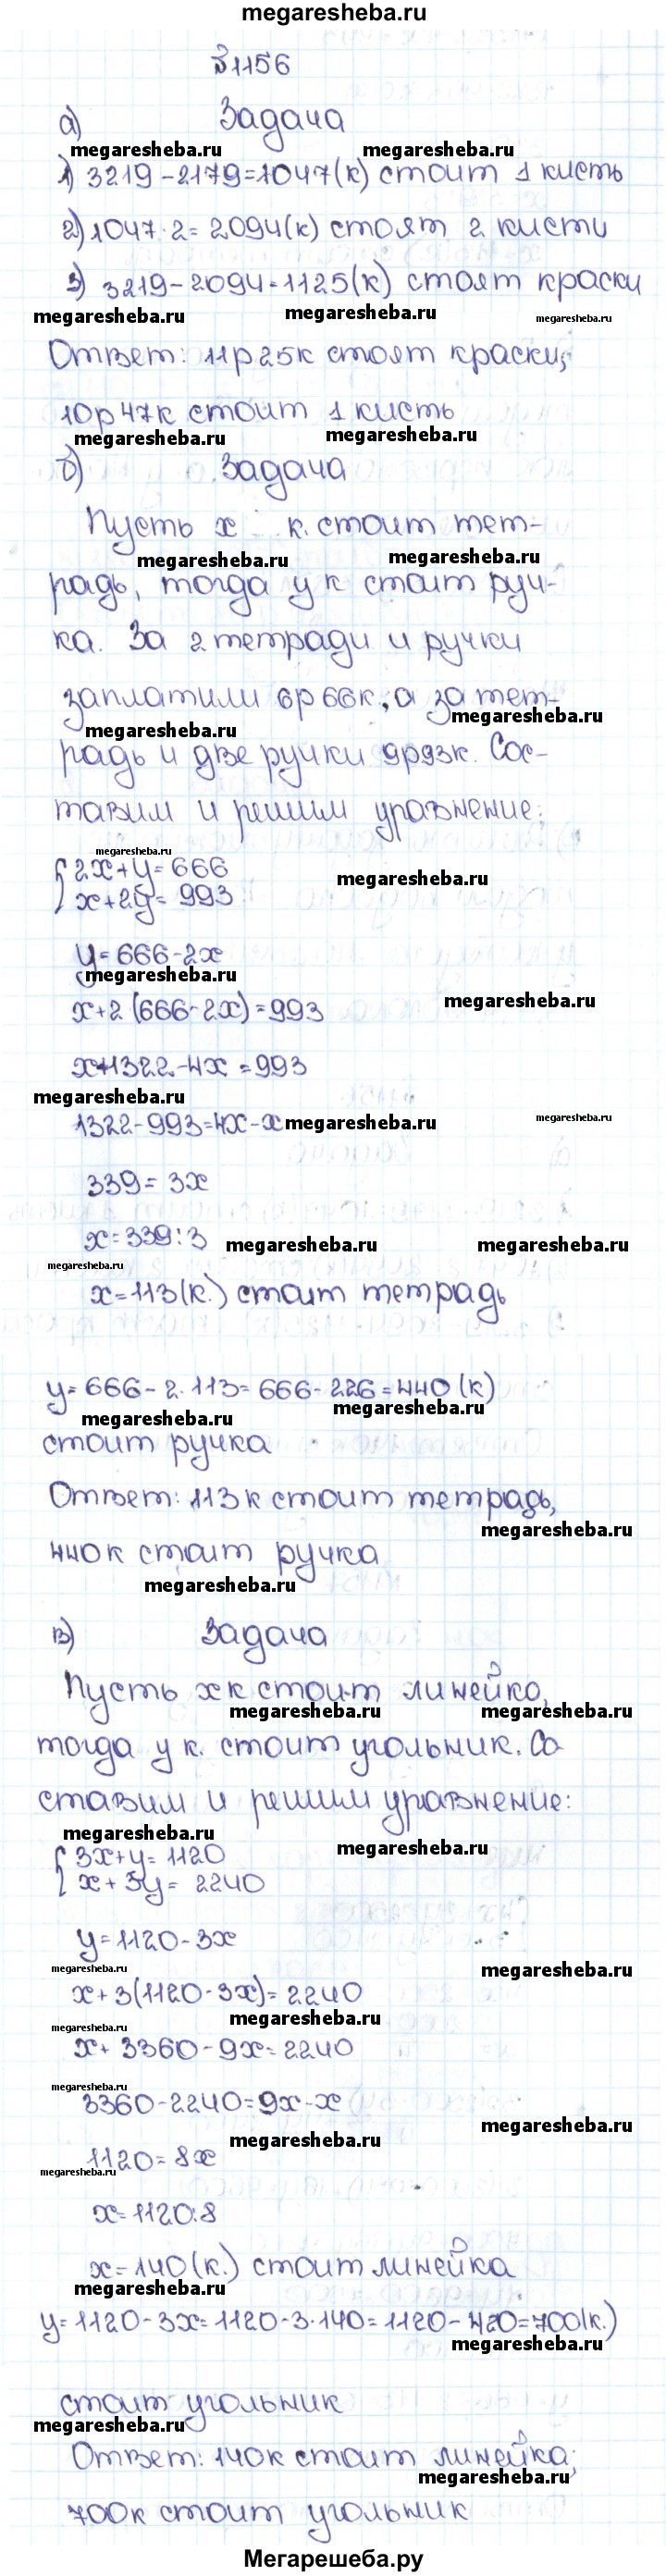 megaresheba.ru
№1156
а) Задача
megaresheba.ru megaresheba.ru
1) 3219-2179=1047(к) стоит 1 кисть
2) 1047·2=2094(к) стоят 2 кисти
3) 3219-2094=1125(к) стоят краски
megaresheba.ru megaresheba.ru megaresheba.ru
Ответ: 11р 25к стоят краски;
10р 47к стоит 1 кисть
megaresheba.ru megaresheba.ru
б) Задача
Пусть х к. стоит тет-
megaresheba.ru megaresheba.ru
радь, тогда у к стоит руч-
ка. За 2 тетради и ручки
заплатили 6р 66к, а за тет-
megaresheba.ru megaresheba.ru
радь и две ручки 9р93к. Сос-
тавим и решим уравнение:
megaresheba.ru
{2х+у=666
х+2у=993
megaresheba.ru
у=666-2х
megaresheba.ru
х+2(666-2х)=993
megaresheba.ru
х+1322-4х=993
megaresheba.ru
1322-993=4х-х
megaresheba.ru megaresheba.ru
339=3х
х=339:3
megaresheba.ru megaresheba.ru
megaresheba.ru
х=113(к.) стоит тетрадь
у=666-2·113=666-226=440(к)
megaresheba.ru megaresheba.ru
стоит ручка
Ответ: 113к стоит тетрадь,
megaresheba.ru
440к стоит ручка
megaresheba.ru
в) Задача
Пусть х к стоит линейка,
megaresheba.ru megaresheba.ru
тогда у к. стоит угольник. Со
ставим и решим уравнение:
megaresheba.ru megaresheba.ru
{3х+у=1120
х+3у=2240
у=1120-3х
megaresheba.ru megaresheba.ru
х+3(1120-3х)=2240
megaresheba.ru
megaresheba.ru
х+3360-9х=2240
megaresheba.ru
3360-2240=9х-х
megaresheba.ru
megaresheba.ru
1120=8х
megaresheba.ru
х=1120:8
х=140(к.) стоит линейка
megaresheba.ru
у=1120-3х=1120-3·140=1120-420=700(к.)
megaresheba.ru
стоит угольник
megaresheba.ru
Ответ: 140к стоит линейка;
megaresheba.ru
700к стоит угольник
Мегарешеба.ру